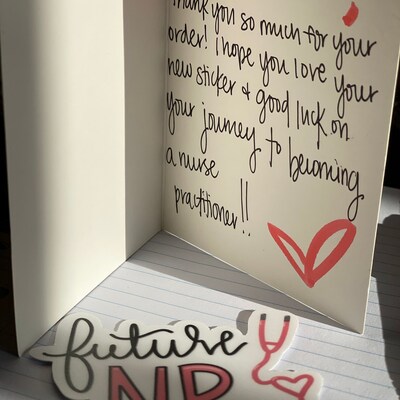 Thank you so much for your
order! i hope you love your
new sticker & good luck on
your journey to becoming
a nurse
practitioner!!
future
NP